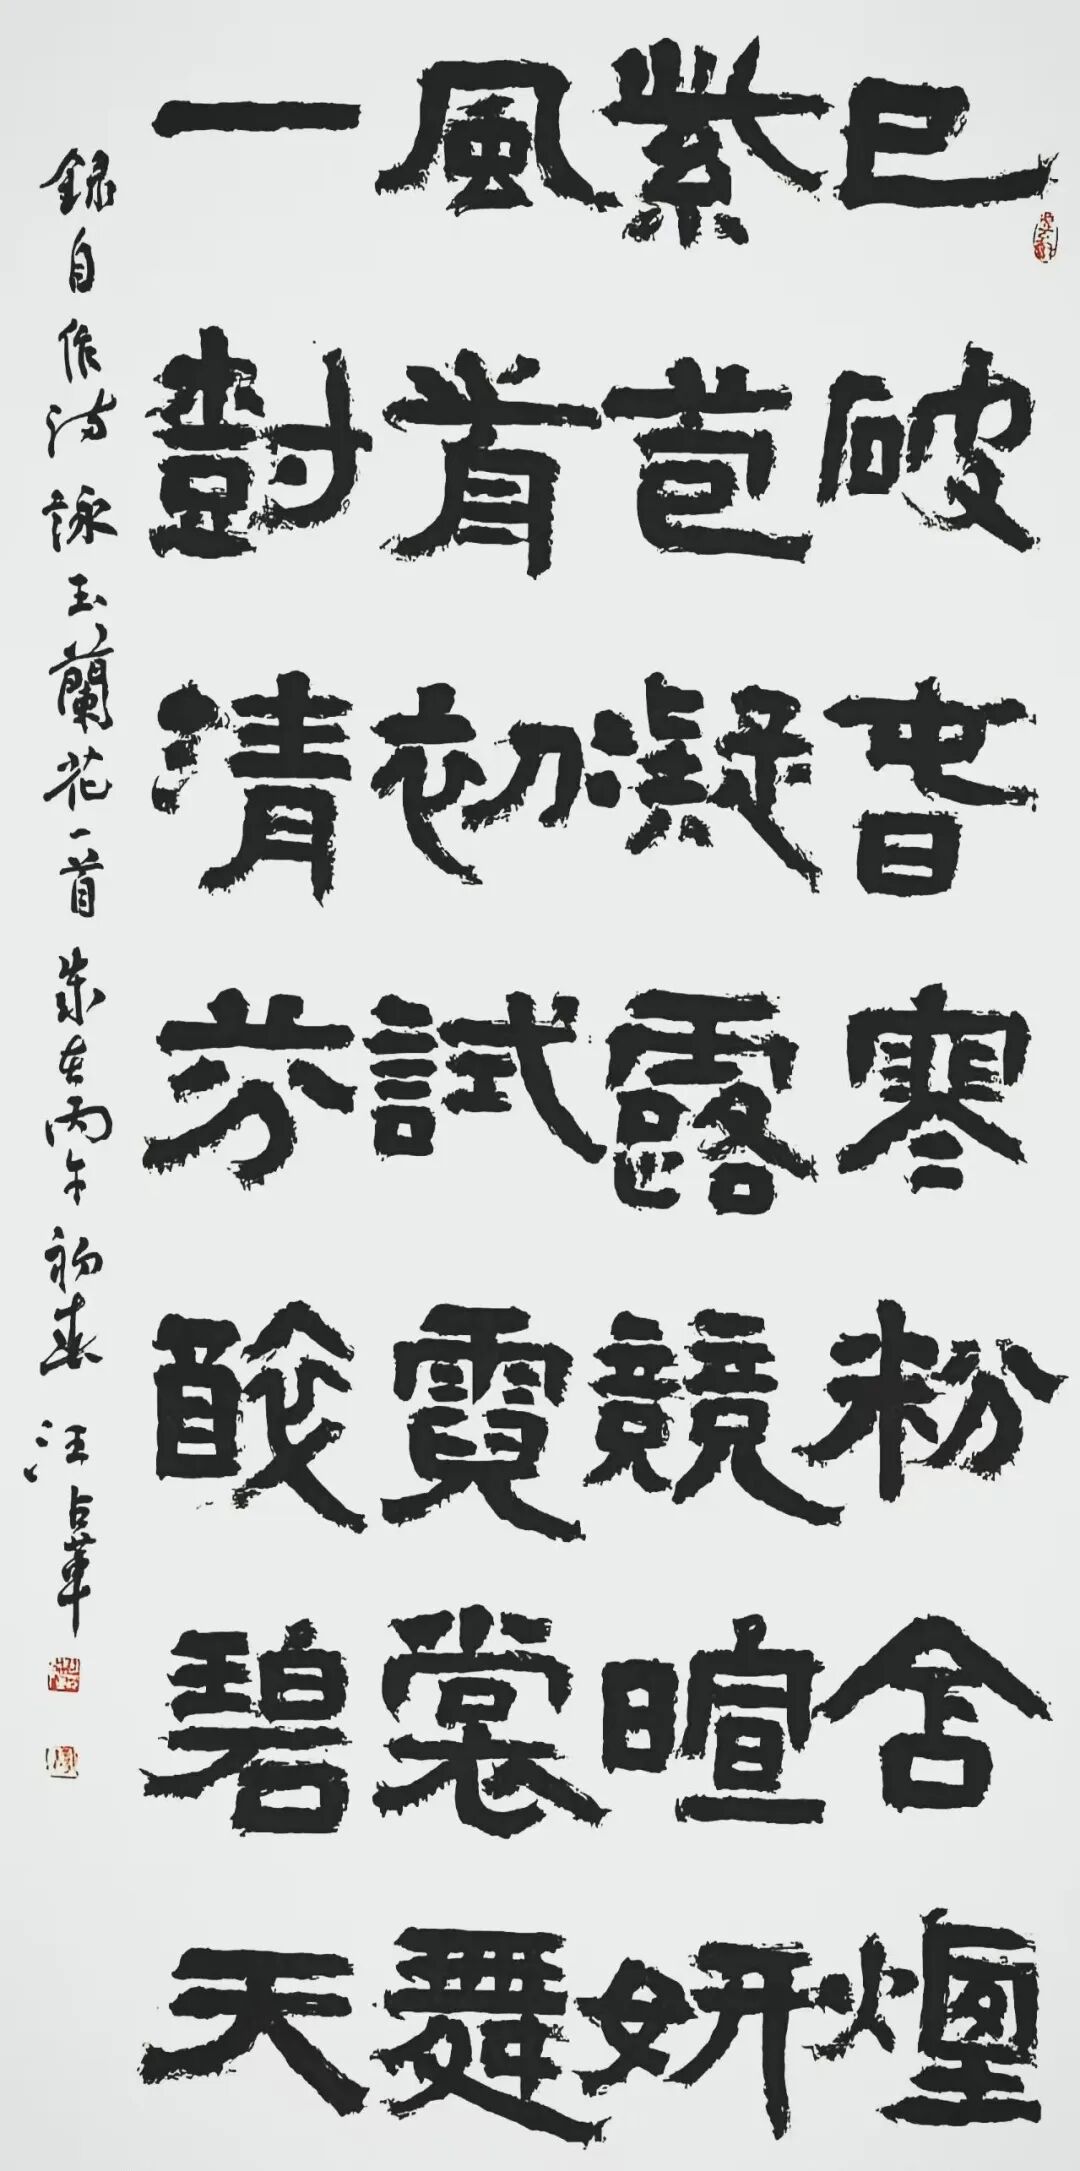 已破旾寒粉含煙
紫苞凝露競暄妍
風前初試霓裳舞
一樹清芬碧天
録自作詩詠玉蘭花一首歲在丙午初春汪占華